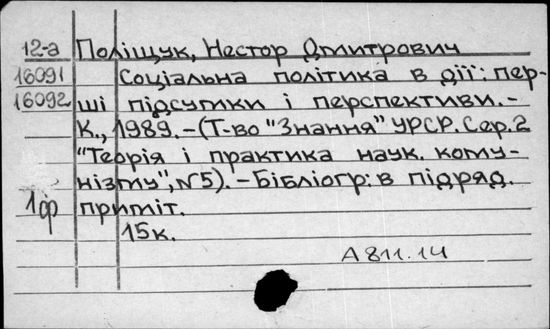 12-а Поліщук, Нестор Дмитрович
16091 Соціальна політика в дії: пер-
16092 ші підсумки і перспективи.-
К., 1989. - (Т-во "Знання" УРСР. Сер. 2
"Теорія і практика наук. кому-
нізму", №5). - Бібліогр: в підряд.
1ф приміт.
15к.
А811.14